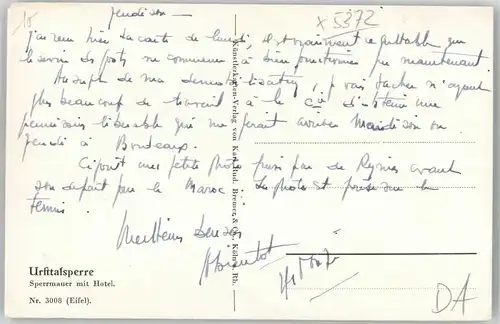 Jeudi soir —
x 5372
J'ai reçu hier la carte de lundi, il est vraiment regrettable que
le service des postes ne commence à bien fonctionner que maintenant
de ma démobilisation, je vais tâcher n'ayant
plus beaucoup de travail à la Cie d'obtenir une
permission libérable qui me ferait arriver Mardi soir ou
Jeudi à Bordeaux.
Ci joint une petite photo prise par de avant
son départ pour le Maroc. La photo est prise sur le
tennis.
Meilleurs baisers
Künstlerkarten-Verlag von Karl Rud. Bremer & Co., Köln a. Rh.
Urfttalsperre
Sperrmauer mit Hotel.
Nr. 3008 (Eifel).
DA